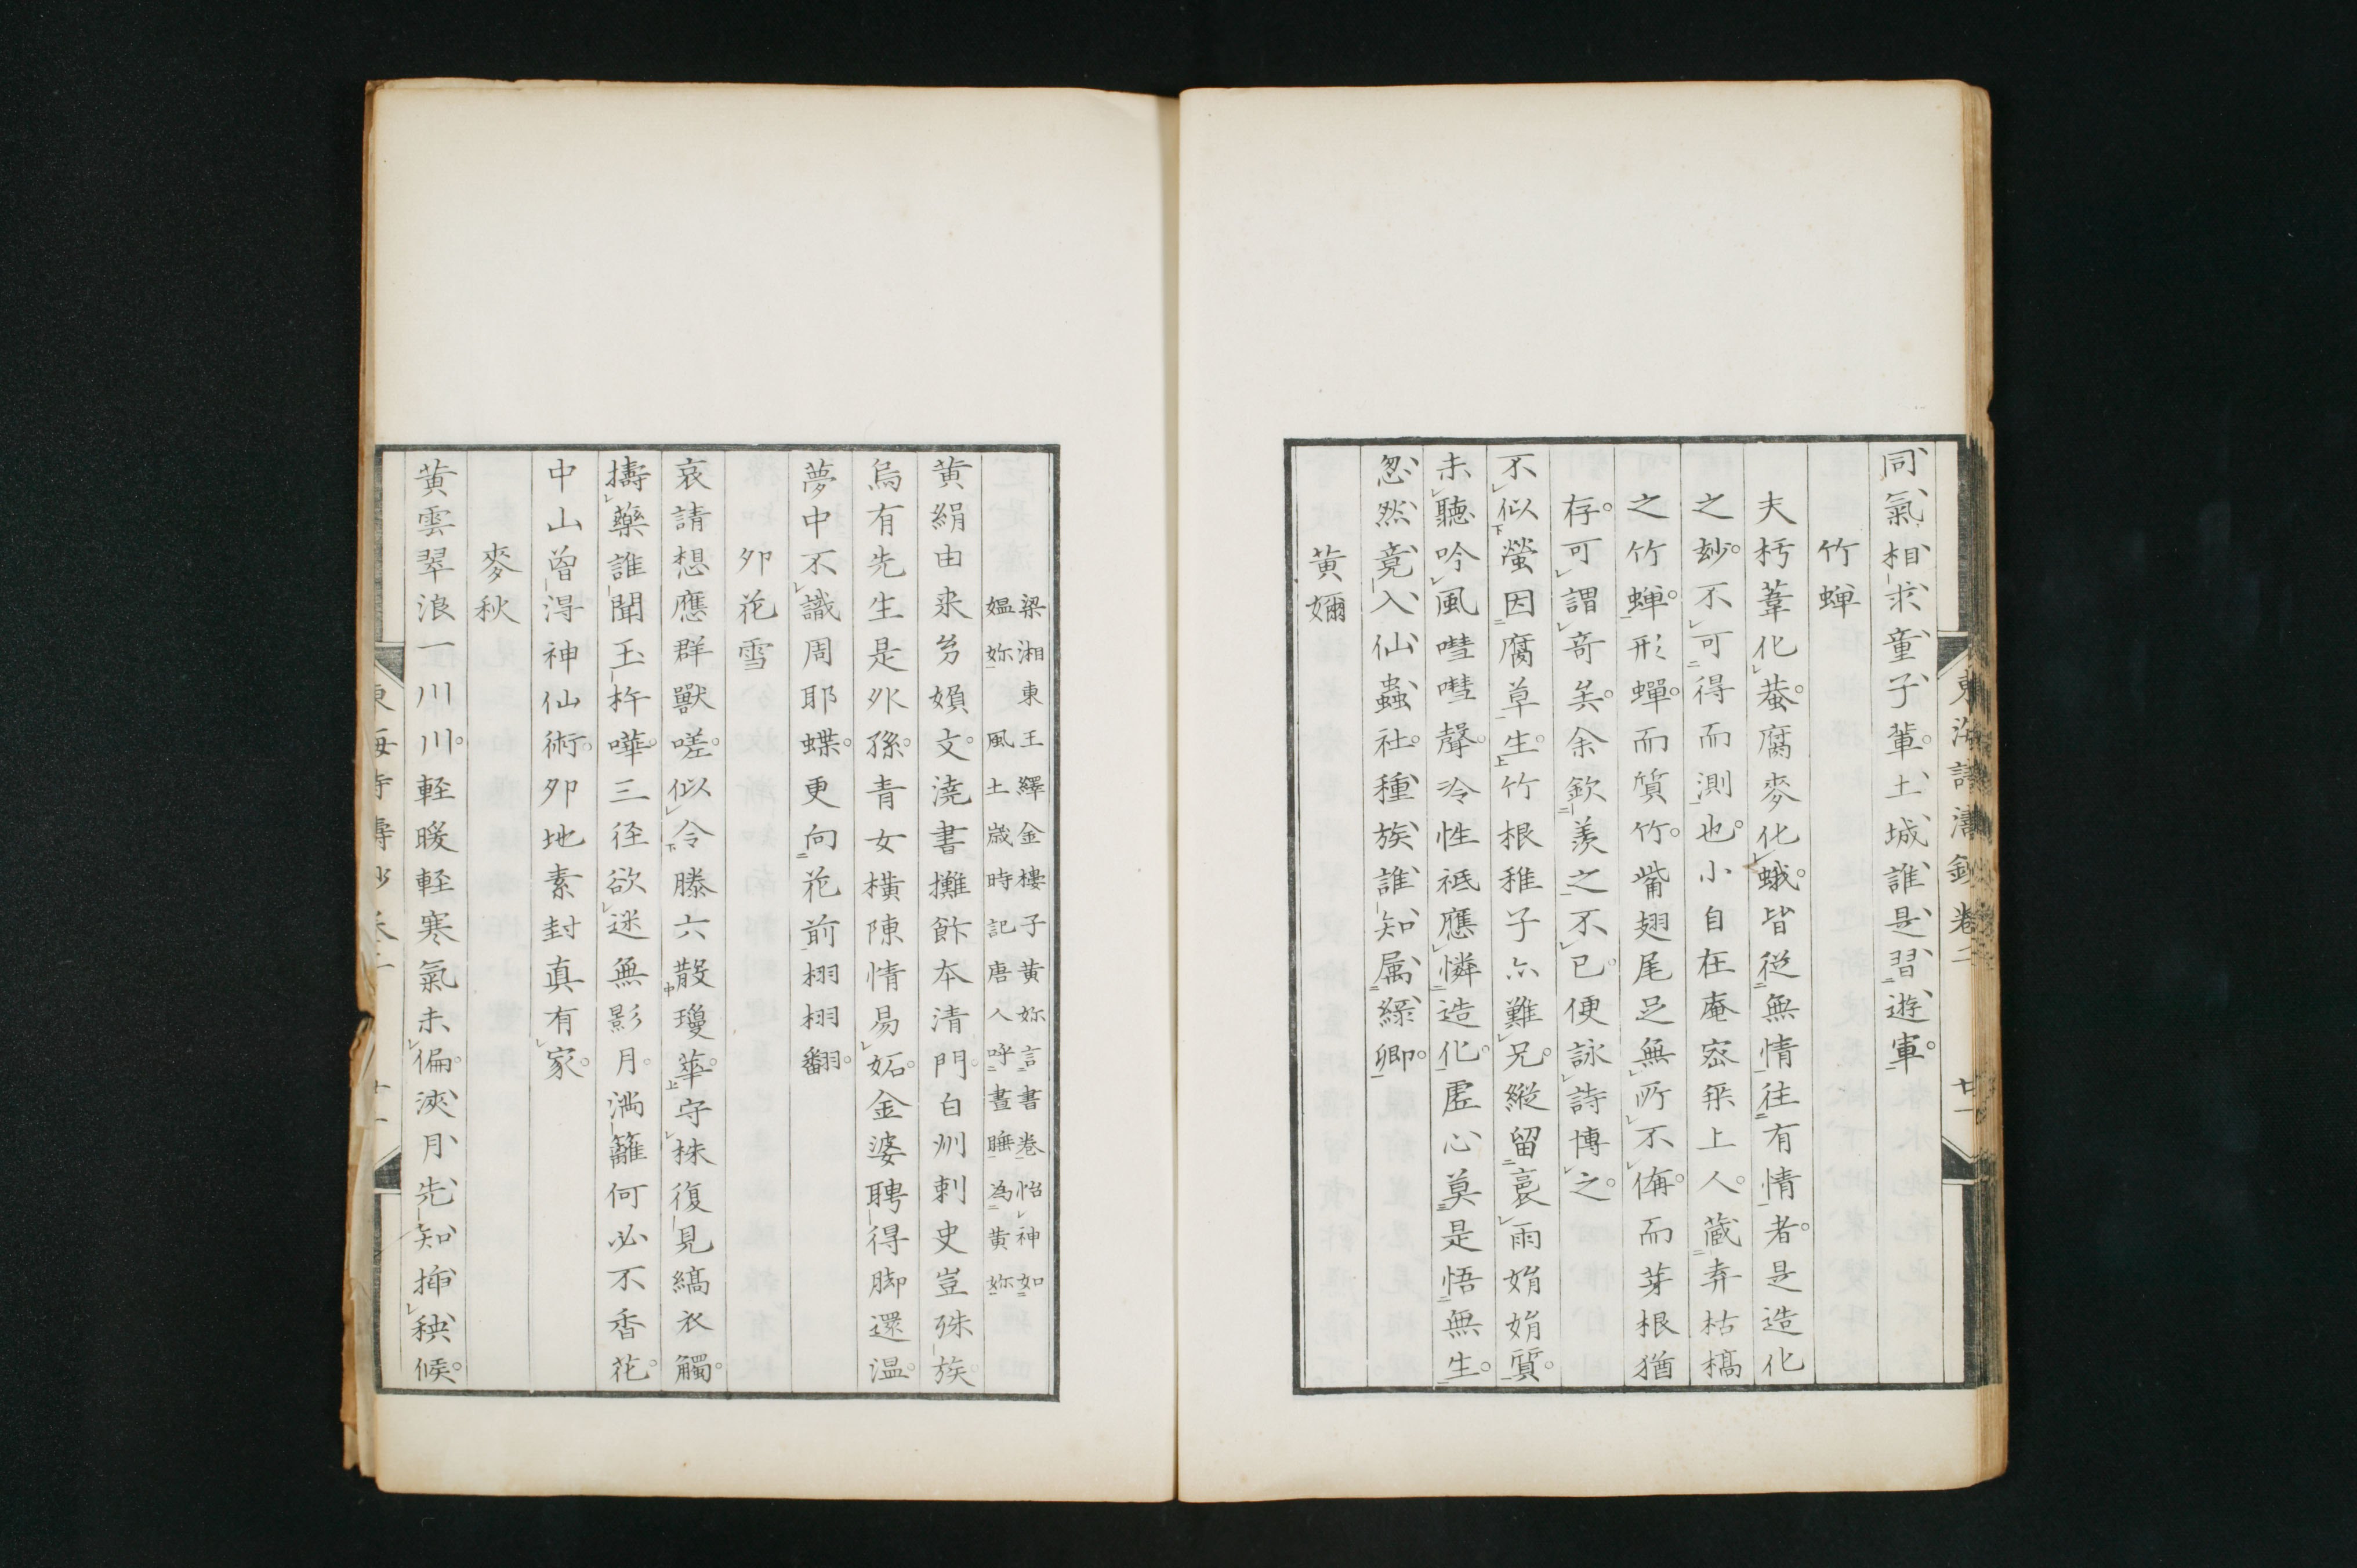 同氣相求童子輩土城誰是習遊軍
竹蟬
夫朽葦化蛬腐麥化蛾皆從無情往有情者是造化
之玅不可得而測也小自在庵宻乗上人蔵弆枯槁
之竹蟬形蟬而質竹觜翅尾足無所不備而芽根猶
存可謂竒矣余欽羨之不已便詠詩博之
不似螢因腐草生竹根稚子亦難兄縦留裊雨娟娟質
未聽吟風嘒嘒聲冷性祗應憐造化虚心莫是悟無生
忽然竟入仙蟲社種族誰知属緑卿
黄嬭
東海詩濤鈔卷二 廿一
梁湘東王繹金樓子黄妳言書巻怡神如
媼妳風土歳時記唐人呼晝睡為黄妳
黄絹由來㓜婦文澆書攤飰本清門白州刺史豈殊族
烏有先生是外孫青女橫陳情易妬金婆聘得脚還温
夢中不識周耶蝶更向花前栩栩翻
夘花雪
哀請想應群獸嗟似令滕六散瓊華守株復見縞衣觸
擣藥誰聞玉杵嘩三径欲迷無影月満籬何必不香花
中山曽淂神仙術夘地素封真有家
麥秋
黄雲翠浪一川川軽暖軽寒氣未偏浹月先知挿秧候